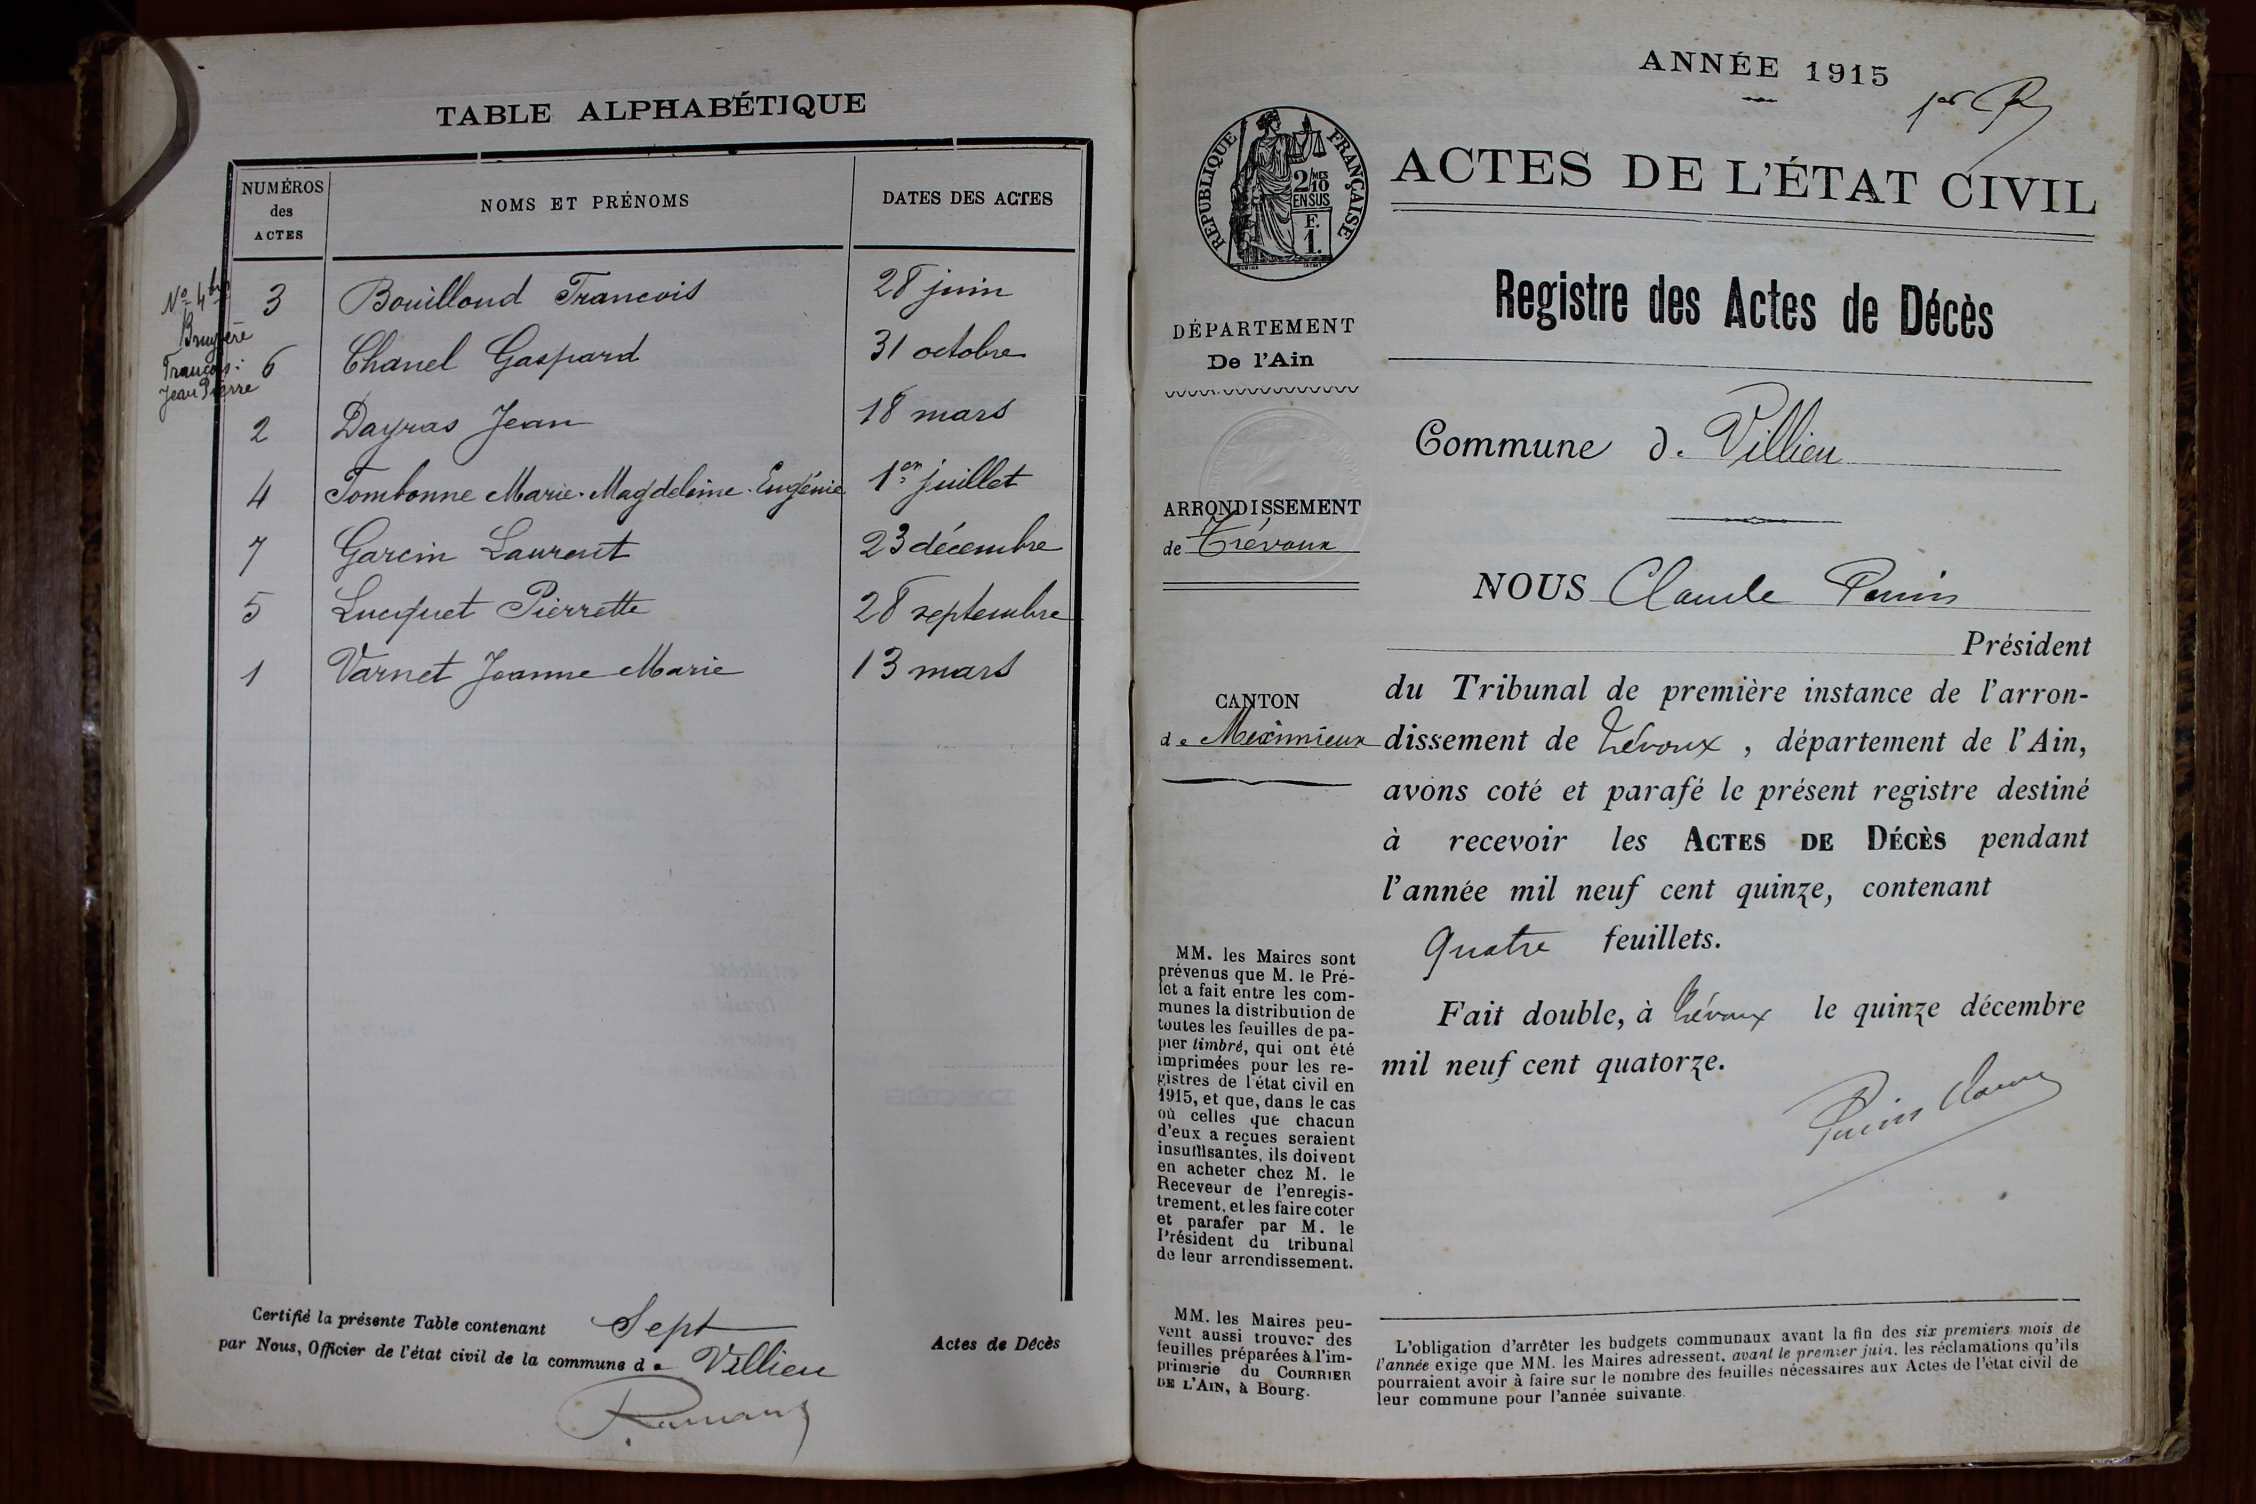 TABLE ALPHABÉTIQUE
NUMÉROS des ACTES NOMS ET PRÉNOMS DATES DES ACTES
No 4 bis
Bruyère
François
Jean Pierre
3 Bouilloud Francois 28 juin
6 Chanel Gaspard 31 octobre
2 Dayras Jean 18 mars
4 Fombonne Marie-Magdeleine-Eugénie 1er juillet
7 Garcin Laurent 23 décembre
5 Lucquet Pierrette 28 septembre
1 Varnet Jeanne Marie 13 mars
Certifié la présente Table contenant Sept Actes de Décès
par Nous, Officier de l'état civil de la commune de Villieu
ANNÉE 1915
1er
RÉPUBLIQUE FRANÇAISE
2/10 MES
EN SUS
F.
1.
ACTES DE L'ÉTAT CIVIL
Registre des Actes de Décès
DÉPARTEMENT
De l'Ain
ARRONDISSEMENT
de Trévoux
CANTON
de Meximieux
MM. les Maires sont
prévenus que M. le Pré-
fet a fait entre les com-
munes la distribution de
toutes les feuilles de pa-
pier timbré, qui ont été
imprimées pour les re-
gistres de l'état civil en
1915, et que, dans le cas
où celles que chacun
d'eux a reçues seraient
insuffisantes, ils doivent
en acheter chez M. le
Receveur de l'enregis-
trement, et les faire coter
et parafer par M. le
Président du tribunal
de leur arrondissement.
MM. les Maires peu-
vent aussi trouver des
feuilles préparées à l'im-
primerie du COURRIER
DE L'AIN, à Bourg.
Commune de Villieu
NOUS Claude
Président
du Tribunal de première instance de l'arron-
dissement de Trévoux, département de l'Ain,
avons coté et parafé le présent registre destiné
à recevoir les ACTES DE DÉCÈS pendant
l'année mil neuf cent quinze, contenant
Quatre feuillets.
Fait double, à Trévoux le quinze décembre
mil neuf cent quatorze.
L'obligation d'arrêter les budgets communaux avant la fin des six premiers mois de
l'année exige que MM. les Maires adressent, avant le premier juin, les réclamations qu'ils
pourraient avoir à faire sur le nombre des feuilles nécessaires aux Actes de l'état civil de
leur commune pour l'année suivante.